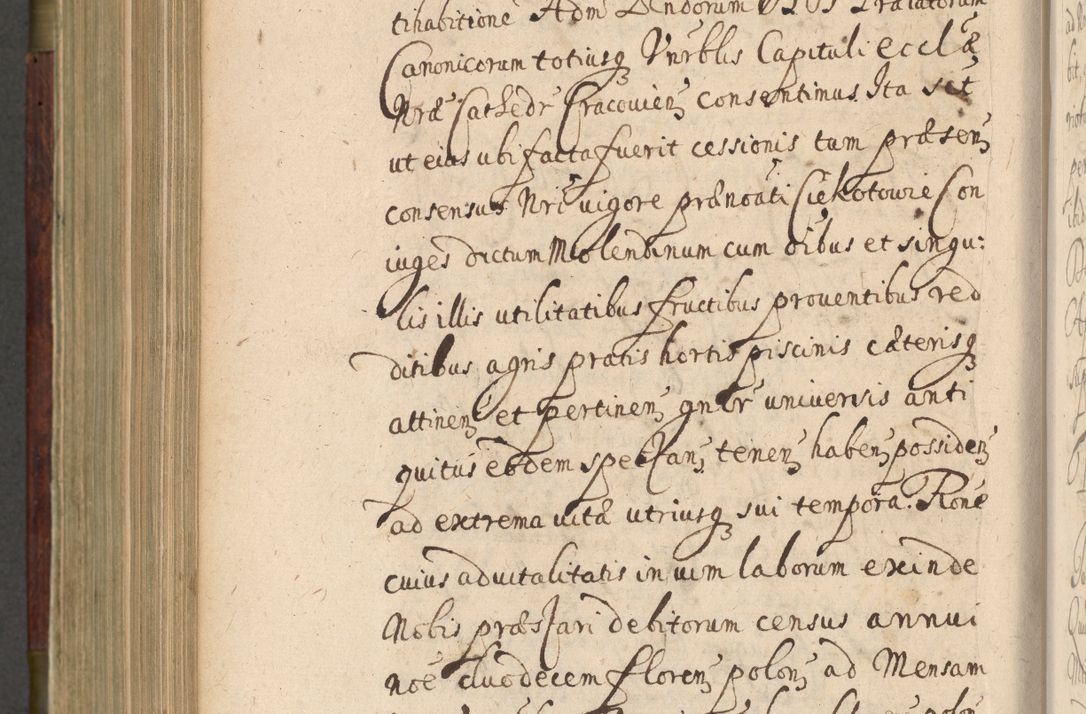 tihabitione Adm Dndorum
Canonicorum totiusq Vnrblis Capituli eccl æ
Nræ Cathedr Cracovien consentimus. Ita scit
ut eius ubi facta fuerit cessionis tum præsen
consensus Nri vigore prænoati Ciekotowie Con
iuges dictum Molendinum cum oibus et singu:
lis illis utilitatibus fructibus proventibus red
ditibus agris pratis hortis piscinis cæterisq
attinen et pertinen gnlr universis anti
quitus eodem spectan tenen haben possiden
ad extrema vitæ utriusq sui tempora. Rone
cuius advitalitatis in vim laborum exinde
Nobis præstari debitorum census annui
noe duodecem floren polon ad Mensam